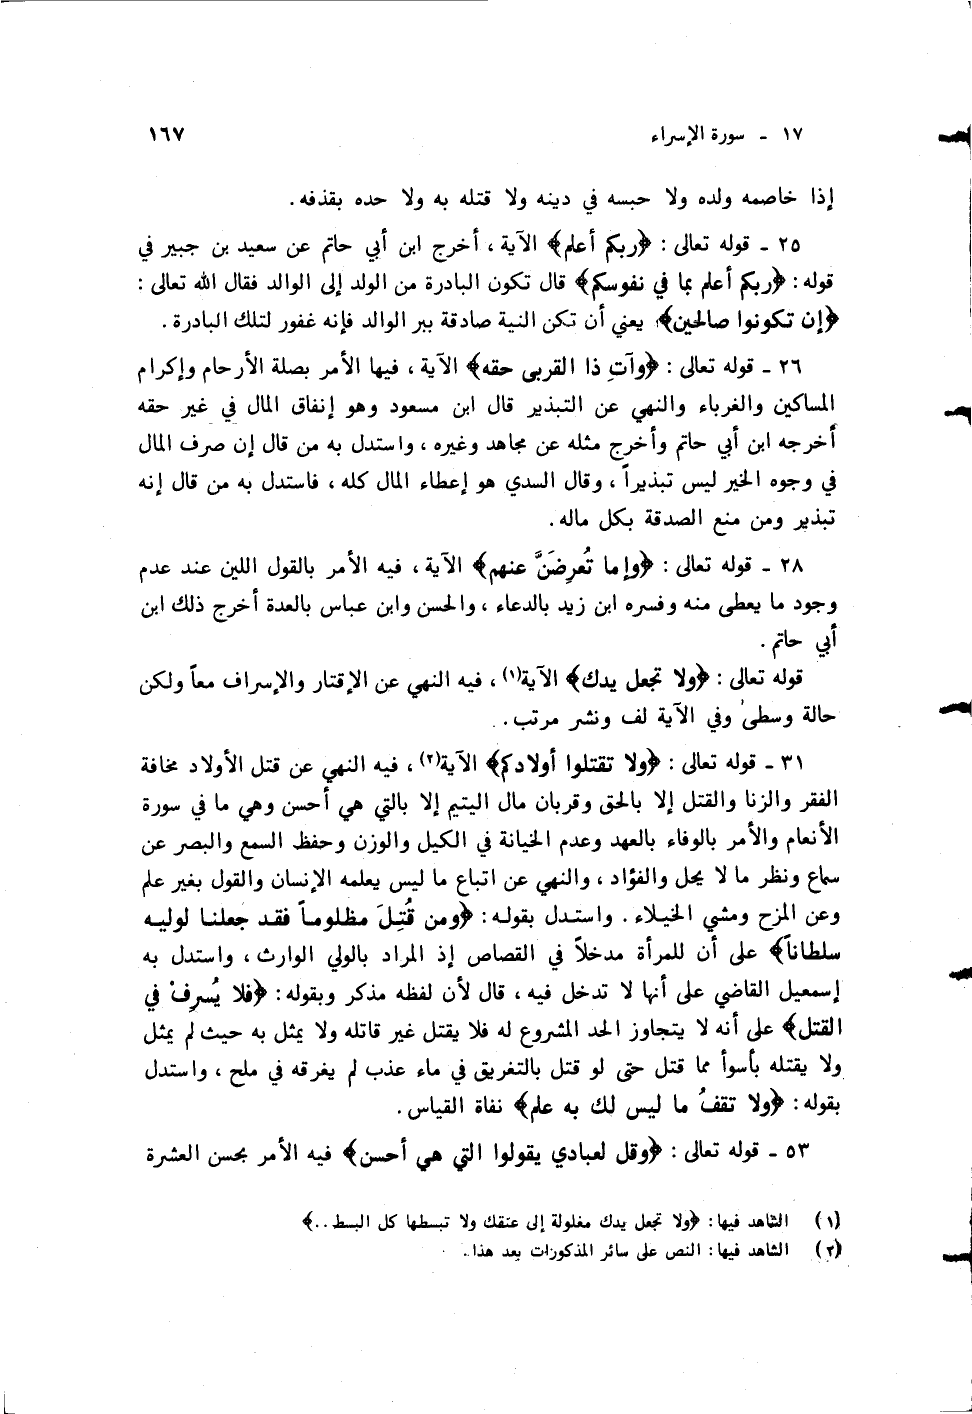 ١٧ - سورة الإسراء ١٦٧
إذا خاصمه ولده ولا حبسه في دينه ولا قتله به ولا حده بقذفه .
٢٥ - قوله تعالى : ﴿ربكم أعلم﴾ الآية ، أخرج ابن أبي حاتم عن سعيد بن جبير في
قوله : ﴿ربكم أعلم بما في نفوسكم﴾ قال تكون البادرة من الولد إلى الوالد فقال الله تعالى :
﴿إن تكونوا صالحين﴾ يعني أن تكن النية صادقة ببر الوالد فإنه غفور لتلك البادرة .
٢٦ - قوله تعالى : ﴿وآتِ ذا القربى حقه﴾ الآية ، فيها الأمر بصلة الأرحام وإكرام
المساكين والغرباء والنهي عن التبذير قال ابن مسعود وهو إنفاق المال في غير حقه
أخرجه ابن أبي حاتم وأخرج مثله عن مجاهد وغيره ، واستدل به من قال إن صرف المال
في وجوه الخير ليس تبذيراً ، وقال السدي هو إعطاء المال كله ، فاستدل به من قال إنه
تبذير ومن منع الصدقة بكل ماله .
٢٨ - قوله تعالى : ﴿وإما تُعرِضَنَّ عنهم﴾ الآية ، فيه الأمر بالقول اللين عند عدم
وجود ما يعطى منه وفسره ابن زيد بالدعاء ، والحسن وابن عباس بالعدة أخرج ذلك ابن
أبي حاتم .
قوله تعالى : ﴿ولا تجعل يدك﴾ الآية(١) ، فيه النهي عن الإقتار والإسراف معاً ولكن
حالة وسطى وفي الآية لف ونشر مرتب .
٣١ - قوله تعالى : ﴿ولا تقتلوا أولادكم﴾ الآية(٢) ، فيه النهي عن قتل الأولاد مخافة
الفقر والزنا والقتل إلا بالحق وقربان مال اليتيم إلا بالتي هي أحسن وهي ما في سورة
الأنعام والأمر بالوفاء بالعهد وعدم الخيانة في الكيل والوزن وحفظ السمع والبصر عن
سماع ونظر ما لا يحل والفؤاد ، والنهي عن اتباع ما ليس يعلمه الإنسان والقول بغير علم
وعن المزح ومشي الخيلاء . واستدل بقوله : ﴿ومن قُتِلَ مظلوماً فقد جعلنا لوليه
سلطاناً﴾ على أن للمرأة مدخلاً في القصاص إذ المراد بالولي الوارث ، واستدل به
إسمعيل القاضي على أنها لا تدخل فيه ، قال لأن لفظه مذكر وبقوله : ﴿فلا يُسرِفْ في
القتل﴾ على أنه لا يتجاوز الحد المشروع له فلا يقتل غير قاتله ولا يمثل به حيث لم يمثل
ولا يقتله بأسوأ مما قتل حتى لو قتل بالتغريق في ماء عذب لم يغرقه في ملح ، واستدل
بقوله : ﴿ولا تقفُ ما ليس لك به علم﴾ نفاة القياس .
٥٣ - قوله تعالى : ﴿وقل لعبادي يقولوا التي هي أحسن﴾ فيه الأمر بحسن العشرة
(١) الشاهد فيها : ﴿ولا تجعل يدك مغلولة إلى عنقك ولا تبسطها كل البسط . .﴾
(٢) الشاهد فيها : النص على سائر المذكورات بعد هذا .